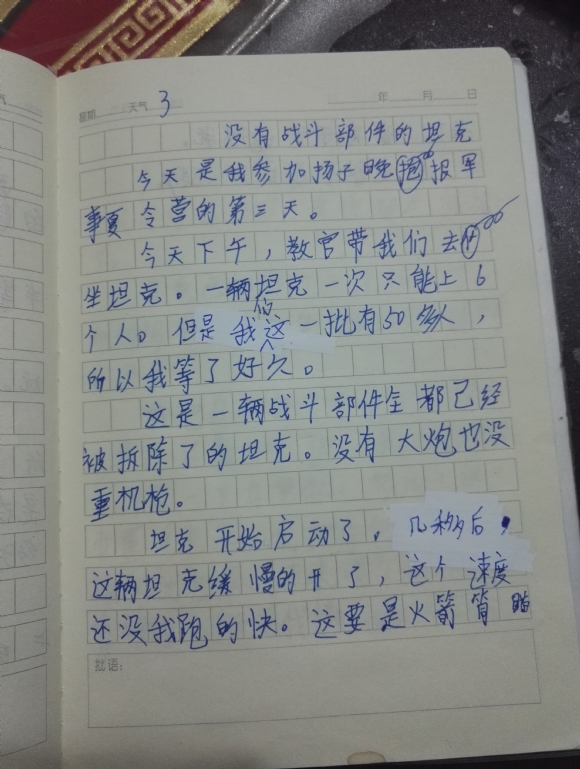 星期 天气 3 年 月 日
没有战斗部件的坦克
今天是我参加扬子晚抱报军
事夏令营的第三天。
今天下午，教官带我们去
坐坦克。一辆坦克一次只能上6
个人。但是我们这一批有50多人，
所以我等了好久。
这是一辆战斗部件全都已经
被拆除了的坦克。没有大炮也没
重机枪。
坦克开始启动了，几秒后，
这辆坦克缓慢的开了，这个速度
还没我跑的快。这要是火箭筒
批语：